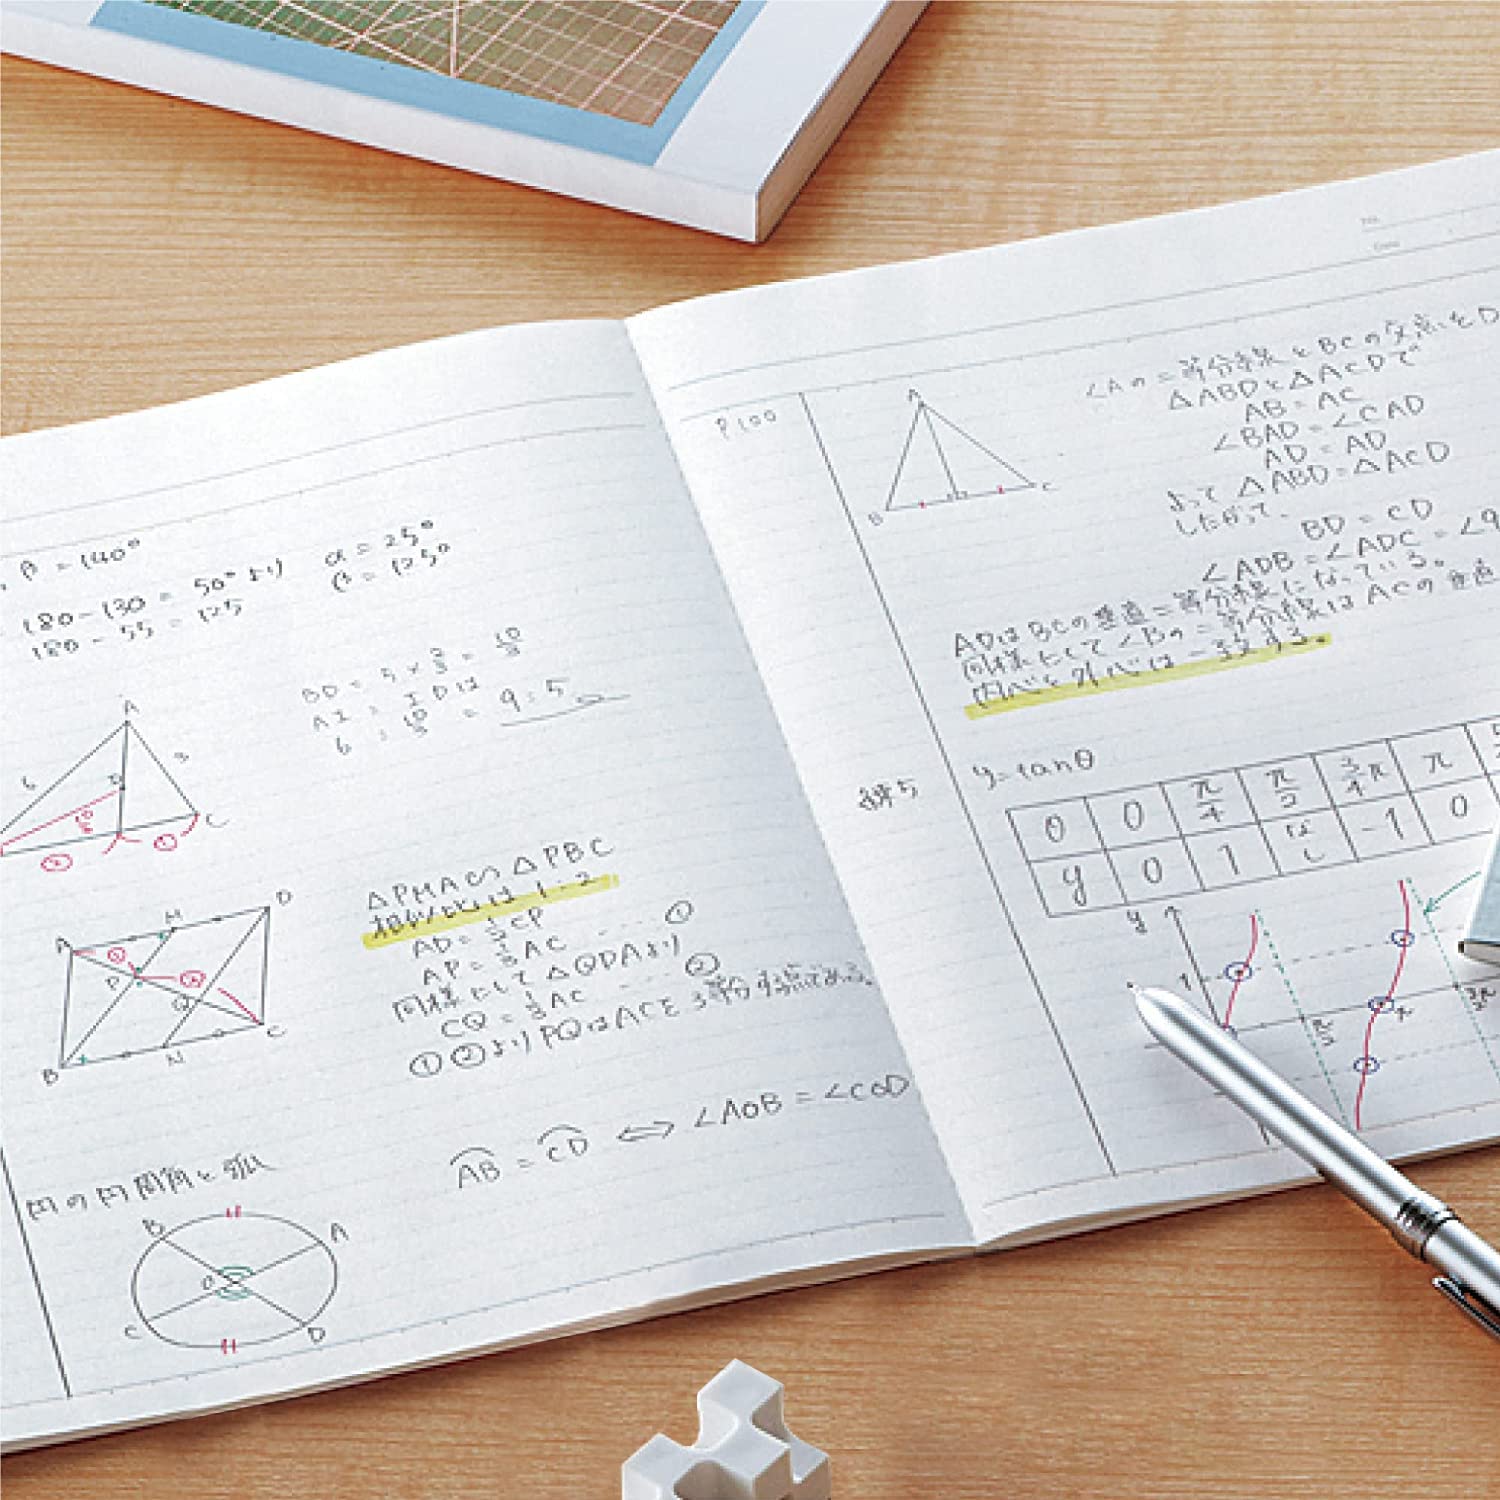 , β = 140°
180 - 130 = 50° より
α = 25°
180 - 55 = 125
β = 125°
BD = 5 × 2/3 = 10/3
AI : IDは
6 : 10/3 = 9:5
A
6
3
I
C
②
①
△PMA∽△PBC
相似比は 1-2
AD = 1/2 CP
AP = 1/3 AC ---- ①
同様にして△QDAより
CQ = 1/3 AC ---- ②
①②より PQはACを3等分する点である。
A
M
D
P
Q
B
N
C
円の円周角と弧
AB = CD ⟺ ∠AOB = ∠COD
B
A
O
C
D
No.
Date
P100
A
B
C
∠Aの二等分線とBCの交点をD
△ABDと△ACDで
AB = AC
∠BAD = ∠CAD
AD = AD
よって △ABD = △ACD
したがって、
BD = CD
∠ADB = ∠ADC = ∠9
ADはBCの垂直二等分線になっている。
同様にして∠Bの二等分線はACの垂直
内心と外心は一致する。
y=tanθ
θ 0 π/4 π/2 3/4π π
y 0 1 なし -1 0
y
1
π/2
π
3/2π